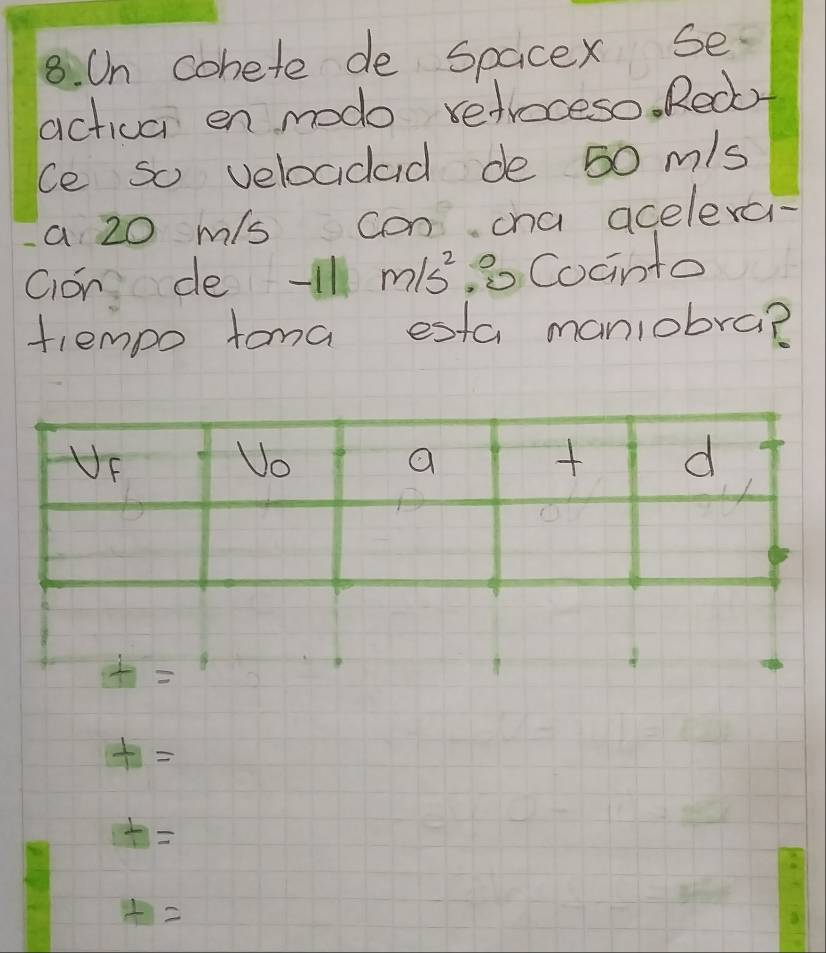 8. Un cohete de spacex se
activa en modo retroceso. Redu-
ce su velocidad de 50 m/s
a 20 m/s con una acelera-
ción de -11 m/s². ¿Cuánto
tiempo toma esta maniobra?
VF Vo a t d
t =
t =
t =
t =